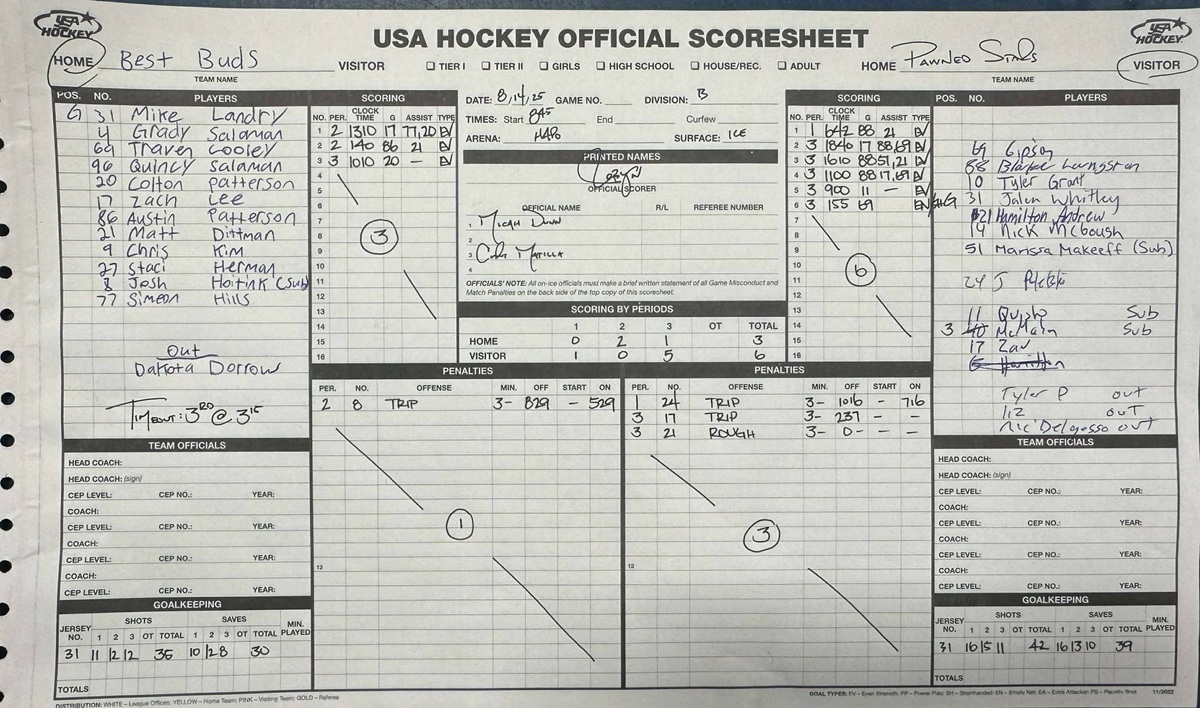 USA HOCKEY
USA HOCKEY OFFICIAL SCORESHEET
USA HOCKEY
HOME Best Buds VISITOR
TEAM NAME
☐ TIER I ☐ TIER II ☐ GIRLS ☐ HIGH SCHOOL ☐ HOUSE/REC. ☐ ADULT
HOME Pawned Stars VISITOR
TEAM NAME
POS. NO. PLAYERS
G 31 Mike Landry
4 Grady Salaman
69 Traven Cooley
96 Quincy Salaman
20 Colton Patterson
17 Zach Lee
86 Austin Patterson
21 Matt Dittman
9 Chris Kim
27 Staci Herman
8 Josh Hoitink (Sub)
77 Simeon Hills
Out
Dakota Dorrow
Timeout: 3RD @ 315
SCORING
NO. PER. CLOCK TIME G ASSIST TYPE
1 2 1310 17 77,20 EV
2 2 140 86 21 EV
3 3 1010 20 — EV
4
5
6
7
8
9
10
11
12
13
14
15
16
3
DATE: 8,14,25 GAME NO. DIVISION: B
TIMES: Start 845 End Curfew
ARENA: SURFACE: ICE
PRINTED NAMES
OFFICIAL SCORER
OFFICIAL NAME R/L REFEREE NUMBER
1 Micah Dunn
2
3
4
OFFICIALS' NOTE: All on-ice officials must make a brief written statement of all Game Misconduct and
Match Penalties on the back side of the top copy of this scoresheet.
SCORING BY PERIODS
1 2 3 OT TOTAL
HOME 0 2 1 3
VISITOR 1 0 5 6
SCORING
NO. PER. CLOCK TIME G ASSIST TYPE
1 1 642 88 21 EV
2 3 1840 17 88,69 EV
3 3 1610 88 51,21 EV
4 3 1100 88 17,69 EV
5 3 900 11 — EV
6 3 155 69 EN
7
8
9
10
11
12
13
14
15
16
6
POS. NO. PLAYERS
69 Gipson
88 Langston
10 Tyler Grant
G 31 Jalen Whitley
21 Hamilton, Andrew
14 Nick McBoush
51 Marissa Makeeff (Sub)
24 J
11 Sub
3 McMain Sub
17 Zav
Tyler P out
out
Nic Delgosso out
PENALTIES
PER. NO. OFFENSE MIN. OFF START ON
2 8 TRIP 3- 829 - 529
12
1
PENALTIES
PER. NO. OFFENSE MIN. OFF START ON
1 24 TRIP 3- 1016 - 716
3 17 TRIP 3- 237 - -
3 21 ROUGH 3- 0- - -
12
3
TEAM OFFICIALS
HEAD COACH:
HEAD COACH: (sign)
CEP LEVEL: CEP NO.: YEAR:
COACH:
CEP LEVEL: CEP NO.: YEAR:
COACH:
CEP LEVEL: CEP NO.: YEAR:
COACH:
CEP LEVEL: CEP NO.: YEAR:
GOALKEEPING
JERSEY NO. SHOTS SAVES MIN. PLAYED
1 2 3 OT TOTAL 1 2 3 OT TOTAL
31 11 12 12 35 10 12 8 30
TOTALS
TEAM OFFICIALS
HEAD COACH:
HEAD COACH: (sign)
CEP LEVEL: CEP NO.: YEAR:
COACH:
CEP LEVEL: CEP NO.: YEAR:
COACH:
CEP LEVEL: CEP NO.: YEAR:
COACH:
CEP LEVEL: CEP NO.: YEAR:
GOALKEEPING
JERSEY NO. SHOTS SAVES MIN. PLAYED
1 2 3 OT TOTAL 1 2 3 OT TOTAL
31 16 15 11 42 16 13 10 39
TOTALS
DISTRIBUTION: WHITE – League Offices; YELLOW – Home Team; PINK – Visiting Team; GOLD – Referee
GOAL TYPES: EV – Even Strength; PP – Power Play; SH – Shorthanded; EN – Empty Net; EA – Extra Attacker; PS – Penalty Shot 11/2022